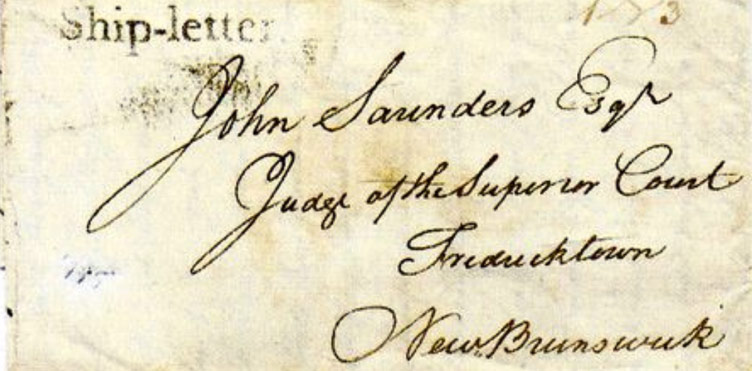 Ship-letter
John Saunders Esqr
Judge of the Superior Court
Fredericktown
New Brunswick